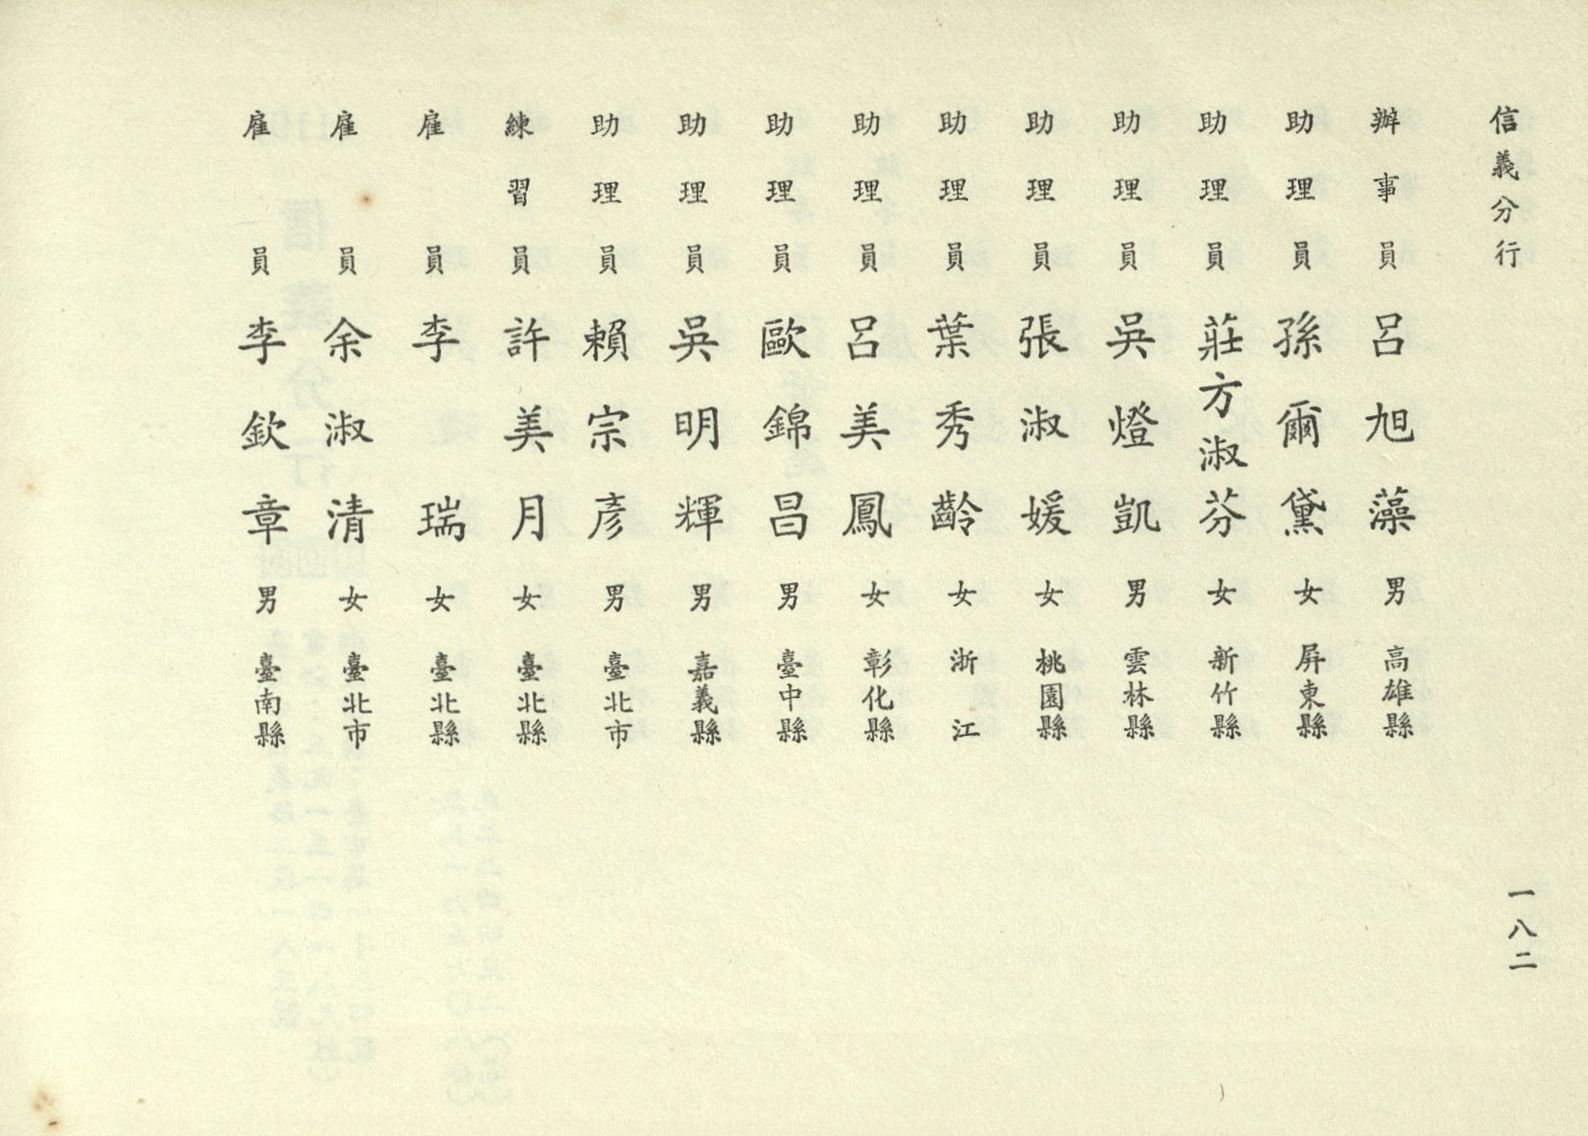 信義分行
辦事員 呂旭藻 男 高雄縣
助理員 孫爾黛 女 屏東縣
助理員 莊方淑芬 女 新竹縣
助理員 吳燈凱 男 雲林縣
助理員 張淑媛 女 桃園縣
助理員 葉秀齡 女 浙江
助理員 呂美鳳 女 彰化縣
助理員 歐錦昌 男 臺中縣
助理員 吳明輝 男 嘉義縣
助理員 賴宗彥 男 臺北市
練習員 許美月 女 臺北縣
雇員 李瑞 女 臺北縣
雇員 余淑清 女 臺北市
雇員 李欽章 男 臺南縣
一八二